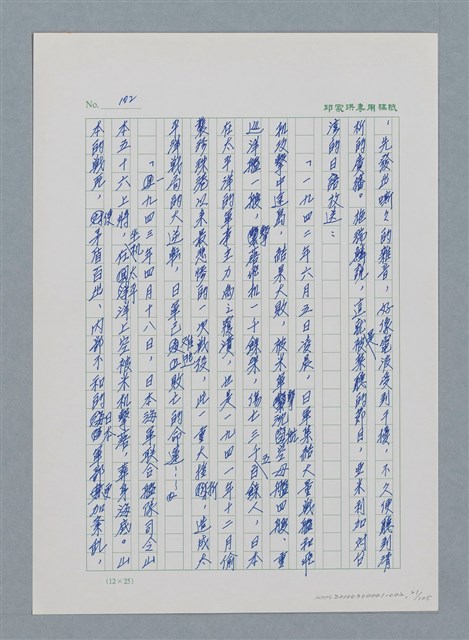 No. 102
邱家洪專用稿紙
，先發出嘶々的雜音，好像電波受到干擾，不久便聽到清
晰的廣播。施瑞麟說，這就是被禁聽的節目，亞米利加對台
灣的日語放送：
「一九四二年六月五日凌晨，日軍集結大量戰艦和飛
機攻擊中途島，結果大敗，被米軍擊沉航空母艦四艘、重
巡洋艦一艘，擊落飛机一千餘架，傷亡三千五百餘人，日本
在太平洋的軍事主力為之覆潰，也是一九四一年十二月偷
襲珍珠港以來最悲慘的一次戰役，此一重大挫折，造成太
平洋戰局的大逆轉，日軍已難逃敗亡的命運……」
「一九四三年四月十八日，日本海軍聯合艦隊司令山
本五十六上將，坐机在太平洋上空被米机擊落，葬身海底。山
本的戰死，使日本軍部更加紊亂，
矛盾百出，內部不和的
(12×25)
21/125